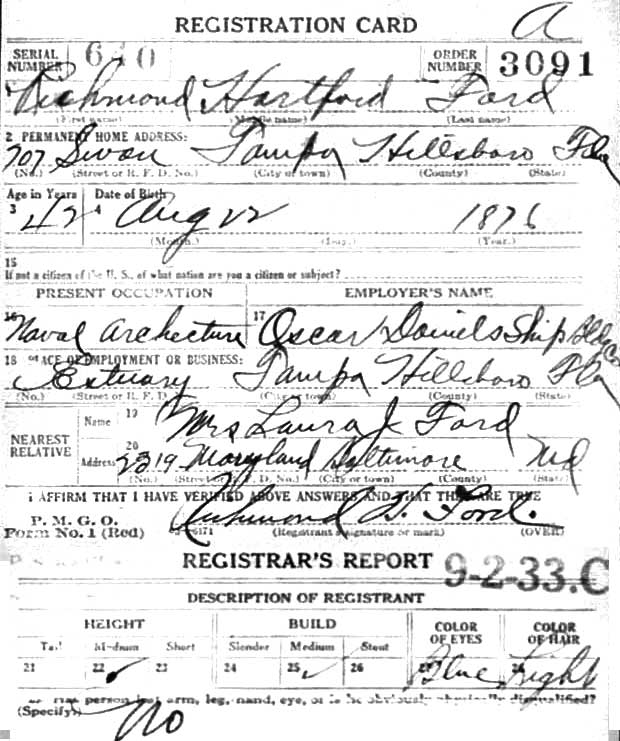 REGISTRATION CARD A
SERIAL NUMBER 640 ORDER NUMBER 3091
Richmond Hartford Ford
(First name) (Middle name) (Last name)
2 PERMANENT HOME ADDRESS:
707 Swan Tampa Hillsboro Fla
(No.) (Street or R. F. D. No.) (City or town) (County) (State)
Age in Years Date of Birth
3 42 4 Aug 22 1876
(Month.) (Day.) (Year.)
15
If not a citizen of the U. S., of what nation are you a citizen or subject?
PRESENT OCCUPATION EMPLOYER'S NAME
16 Naval Archecture 17 Oscar Daniels Ship Bldg Co
18 PLACE OF EMPLOYMENT OR BUSINESS:
Estuary Tampa Hillsboro Fla
(No.) (Street or R. F. D.) (City or town) (County) (State)
NEAREST RELATIVE
Name 19 Mrs Laura J Ford
Address 20 2319 Maryland Baltimore Md
(No.) (Street or R. F. D. No.) (City or town) (County) (State)
I AFFIRM THAT I HAVE VERIFIED ABOVE ANSWERS AND THAT THEY ARE TRUE
P. M. G. O.
Form No. 1 (Red) Richmond H. Ford.
(Registrant's signature or mark) (OVER)
REGISTRAR'S REPORT 9-2-33.C
DESCRIPTION OF REGISTRANT
HEIGHT BUILD COLOR OF EYES COLOR OF HAIR
Tall Medium Short Slender Medium Stout
21 22 ✓ 23 24 25 ✓ 26 27 Blue 28 Light
29 Has person lost arm, leg, hand, eye, or is he obviously physically disqualified?
(Specify.) No